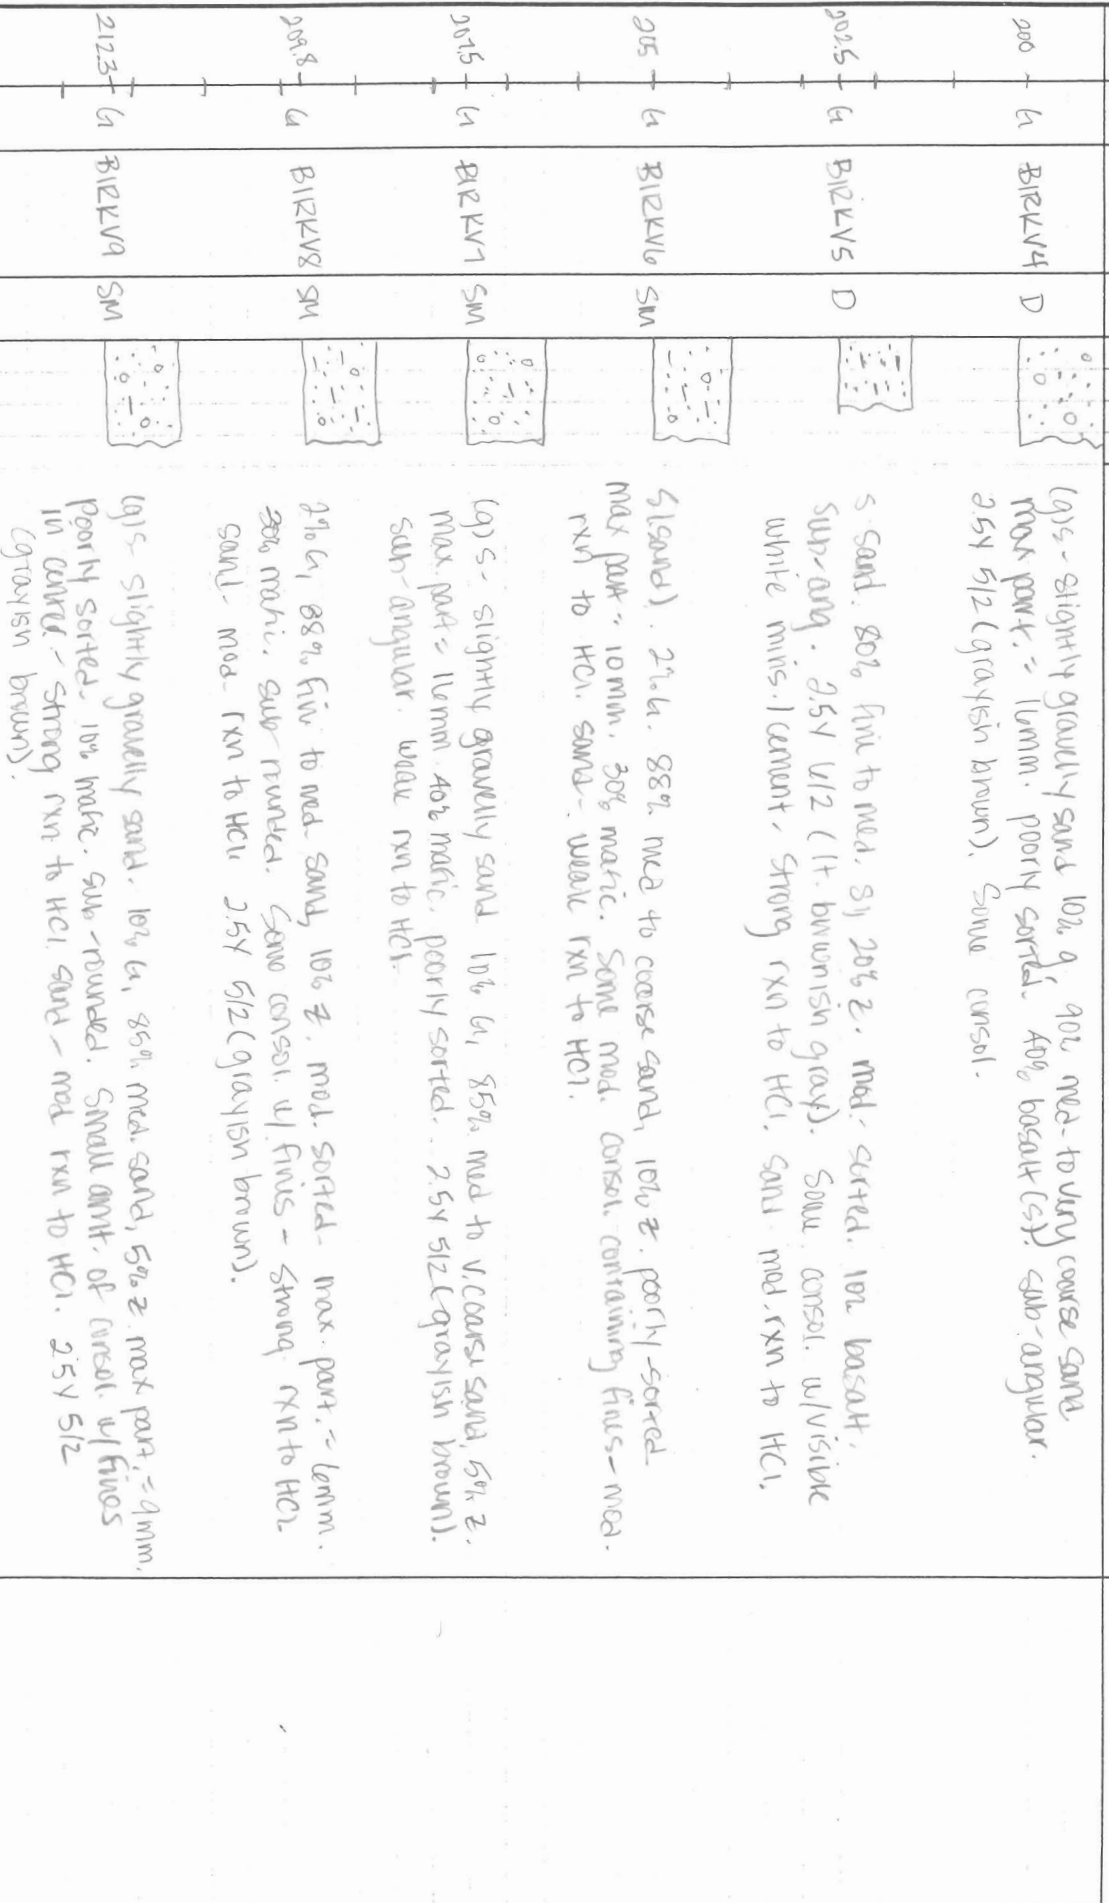 200 G B1RKV4 D
(g)s - slightly gravelly sand 10% g, 90% med-to very coarse sand
max part. = 16mm. poorly sorted. 40% basalt(s). sub-angular.
2.5Y 5/2 (grayish brown). Some consol.
202.5 G B1RKV5 D
s. sand. 80% fine to med. s, 20% z. mod. sorted. 10% basalt.
sub-ang. 2.5Y 6/2 (lt. brownish gray). Some consol. w/visible
white mins./cement - strong rxn to HCl. sand - med. rxn to HCl.
205 G B1RKV6 SM
S(sand). 2% G. 88% med to coarse sand, 10% z. poorly-sorted
max part = 10mm. 30% mafic. Some mod. consol. containing fines - mod.
rxn to HCl. sand - weak rxn to HCl.
207.5 G B1RKV7 SM
(g)s - slightly gravelly sand 10% G, 85% med to v.coarse sand, 5% z.
max. part = 16mm 40% mafic. poorly sorted. 2.5Y 5/2 (grayish brown).
sub-angular. weak rxn to HCl.
209.8 G B1RKV8 SM
2% G, 88% fine to med sand, 10% z. mod. sorted. max. part. = 6mm.
30% mafic. sub-rounded. Some consol. w/ fines - strong rxn to HCl.
sand - mod. rxn to HCl. 2.5Y 5/2 (grayish brown).
212.3 G B1RKV9 SM
(g)s slightly gravelly sand. 10% G, 85% med. sand, 5% z max part. = 9mm.
Poorly sorted. 10% mafic. sub-rounded. Small amt. of consol. w/ fines
in center - strong rxn to HCl. sand - mod rxn to HCl. 2.5Y 5/2
(grayish brown).